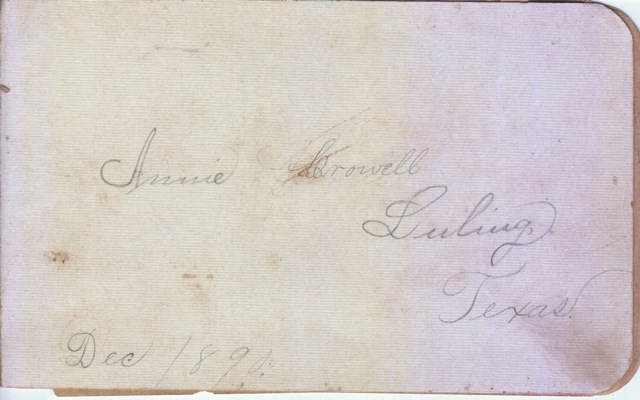 Annie Crowell
Luling,
Texas.
Dec 1890.